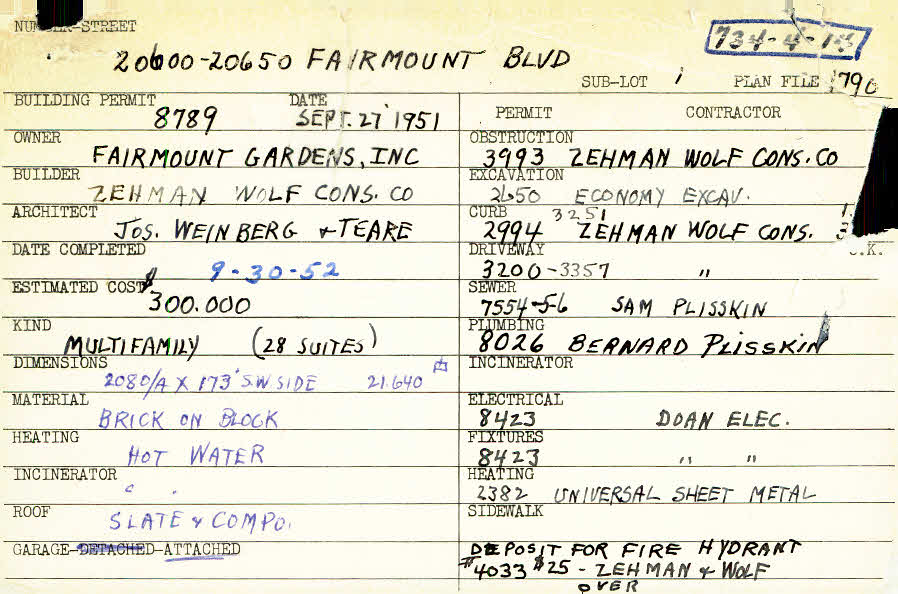 NUMBER-STREET
20600-20650 FAIRMOUNT BLVD
734-4-
SUB-LOT 1 PLAN FILE 1790
BUILDING PERMIT 8789 DATE SEPT. 27 1951
PERMIT CONTRACTOR
OWNER FAIRMOUNT GARDENS, INC
OBSTRUCTION 3993 ZEHMAN WOLF CONS. CO
BUILDER ZEHMAN WOLF CONS. CO
EXCAVATION 2650 ECONOMY EXCAV.
ARCHITECT JOS. WEINBERG & TEARE
CURB 3251
2994 ZEHMAN WOLF CONS.
DATE COMPLETED 9-30-52
DRIVEWAY O.K.
3200-3357 "
ESTIMATED COST $300.000
SEWER 7554-5-6 SAM PLISSKIN
KIND MULTIFAMILY (28 SUITES)
PLUMBING 8026 BERNARD PLISSKIN
DIMENSIONS X 173' S.W SIDE 21.640
INCINERATOR
MATERIAL BRICK ON BLOCK
ELECTRICAL 8423 DOAN ELEC.
HEATING HOT WATER
FIXTURES 8423 " "
INCINERATOR
HEATING 2382 UNIVERSAL SHEET METAL
ROOF SLATE & COMPO.
SIDEWALK
GARAGE-DETACHED-ATTACHED
DEPOSIT FOR FIRE HYDRANT
#4033 $25 - ZEHMAN & WOLF
OVER